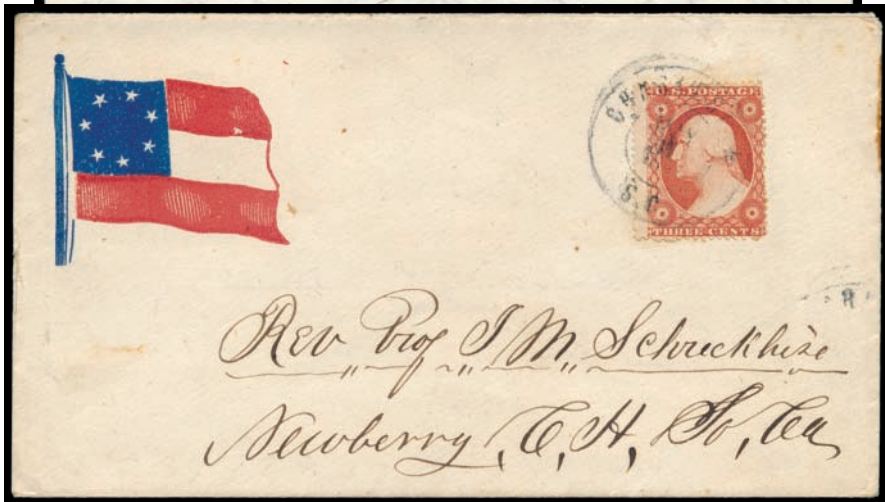 U.S. POSTAGE
S.C.
THREE CENTS
Rev Prof J M Schreckhise
Newberry, C, H, So, Ca